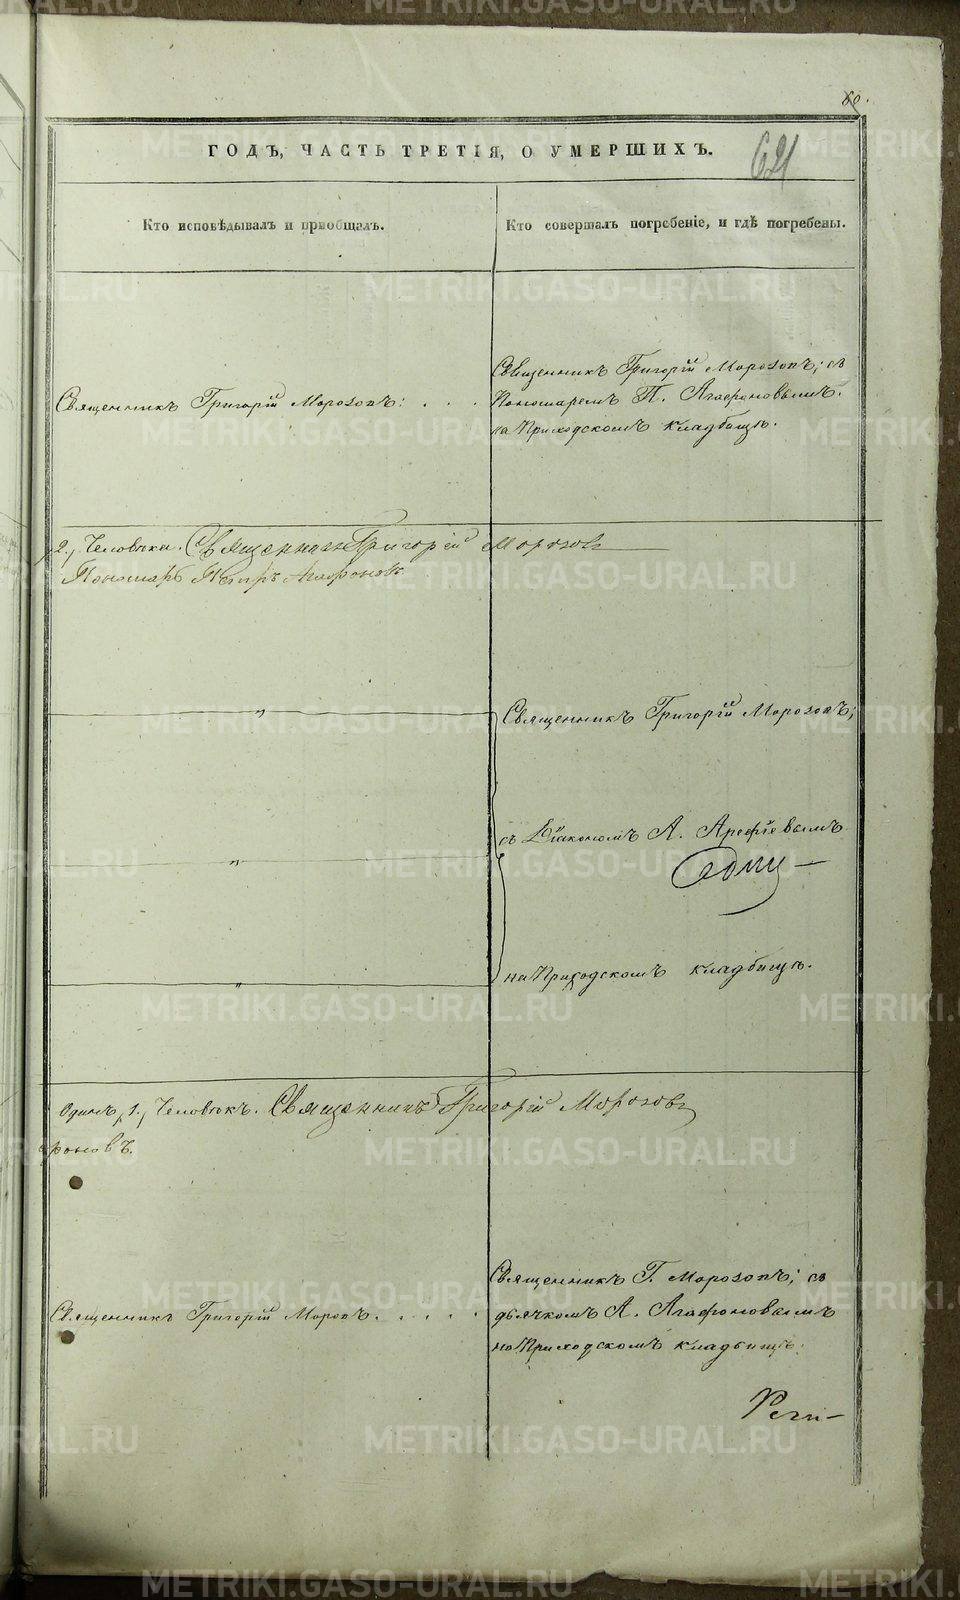 60.
ГОДЪ, ЧАСТЬ ТРЕТІЯ, О УМЕРШИХЪ.
61
Кто исповѣдывалъ и пріобщалъ.
Кто совершалъ погребеніе, и гдѣ погребены.
Священникъ Григорій Морозовъ: . . .
Священникъ Григорій Морозовъ; съ
Пономаремъ П. Агафоновымъ.
на Приходскомъ кладбищѣ.
2. Человѣка. Священникъ Григорій Морозовъ
Пономарь Петръ Агафоновъ
„
Священникъ Григорій Морозовъ;
„
съ Діакономъ А. Арефіевымъ
„
на Приходскомъ кладбищѣ.
Одинъ 1. Человѣкъ. Священникъ Григорій Морозовъ
фоновъ.
Священникъ Григорій Морозовъ. . . . .
Священникъ Г. Морозовъ; съ
дьячкомъ А. Агафоновымъ
на Приходскомъ кладбищѣ.
METRIKI.GASO-URAL.RU